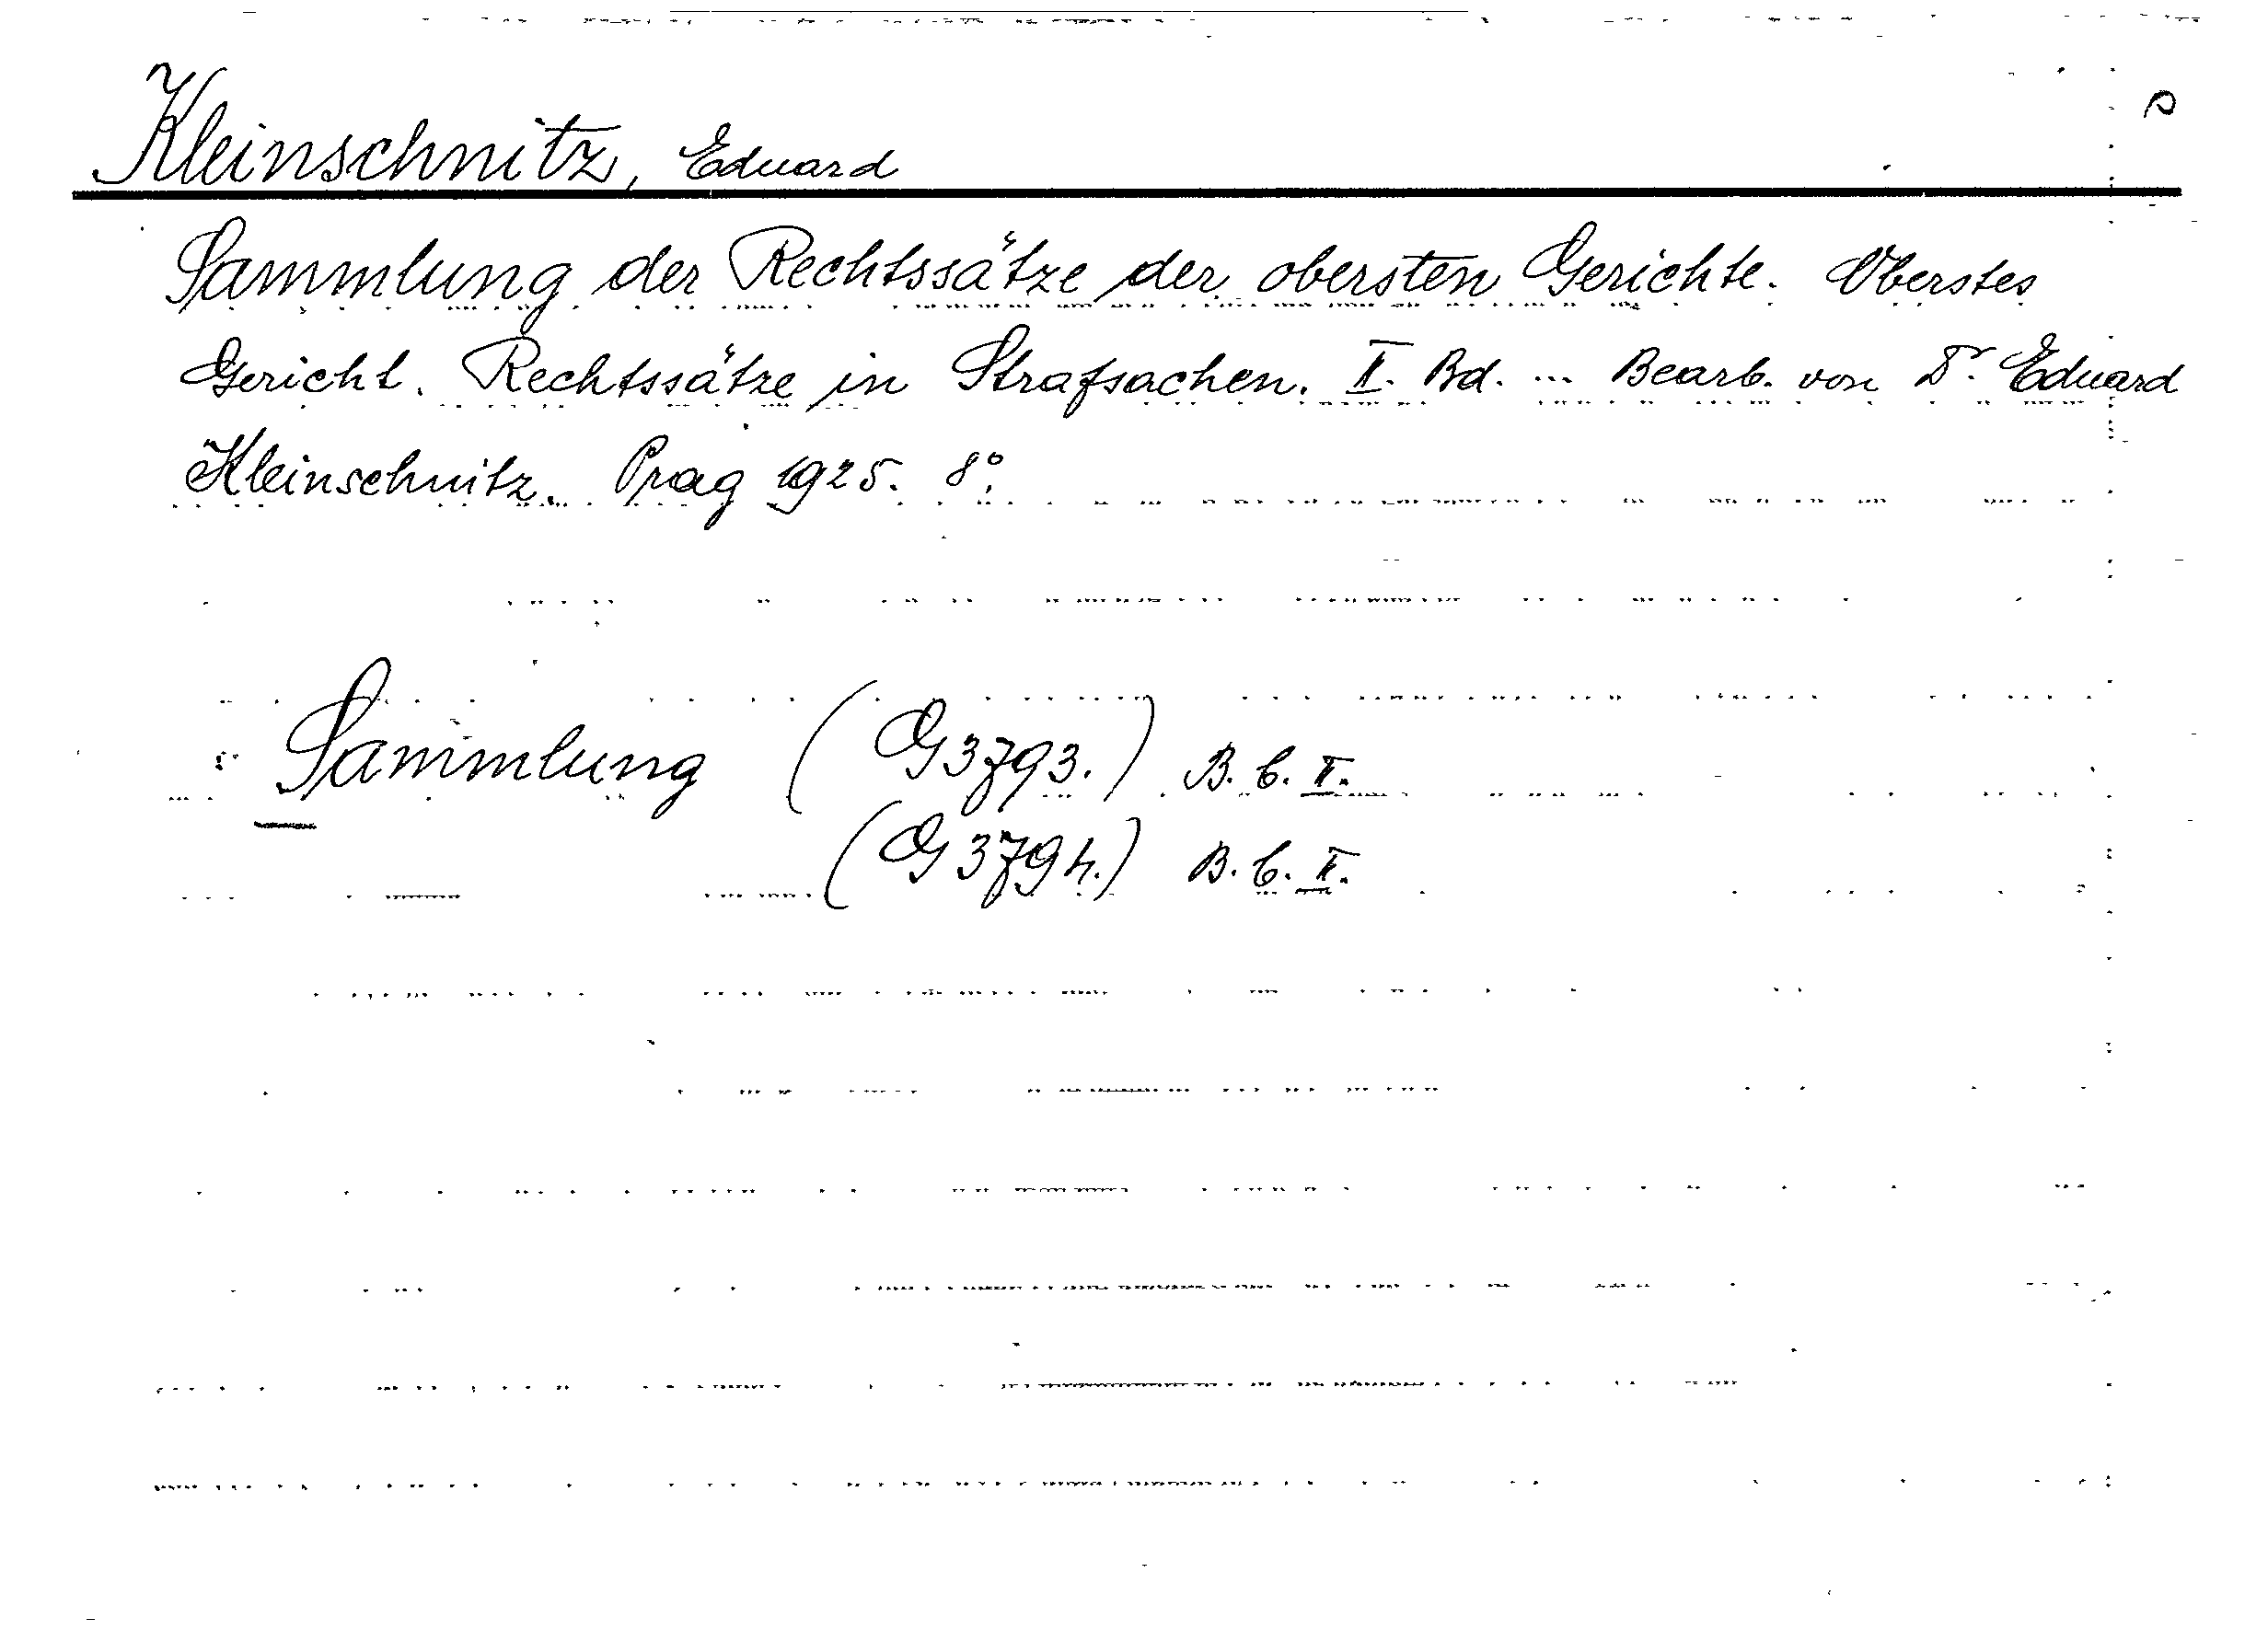 Kleinschnitz, Eduard
Sammlung der Rechtssätze der obersten Gerichte. Oberstes
Gericht. Rechtssätze in Strafsachen. II. Bd. ... Bearb. von Dr. Eduard
Kleinschnitz. Prag 1925. 8°.
Sammlung (G 3793.) B. C. II.
(G 3794.) B. C. II.